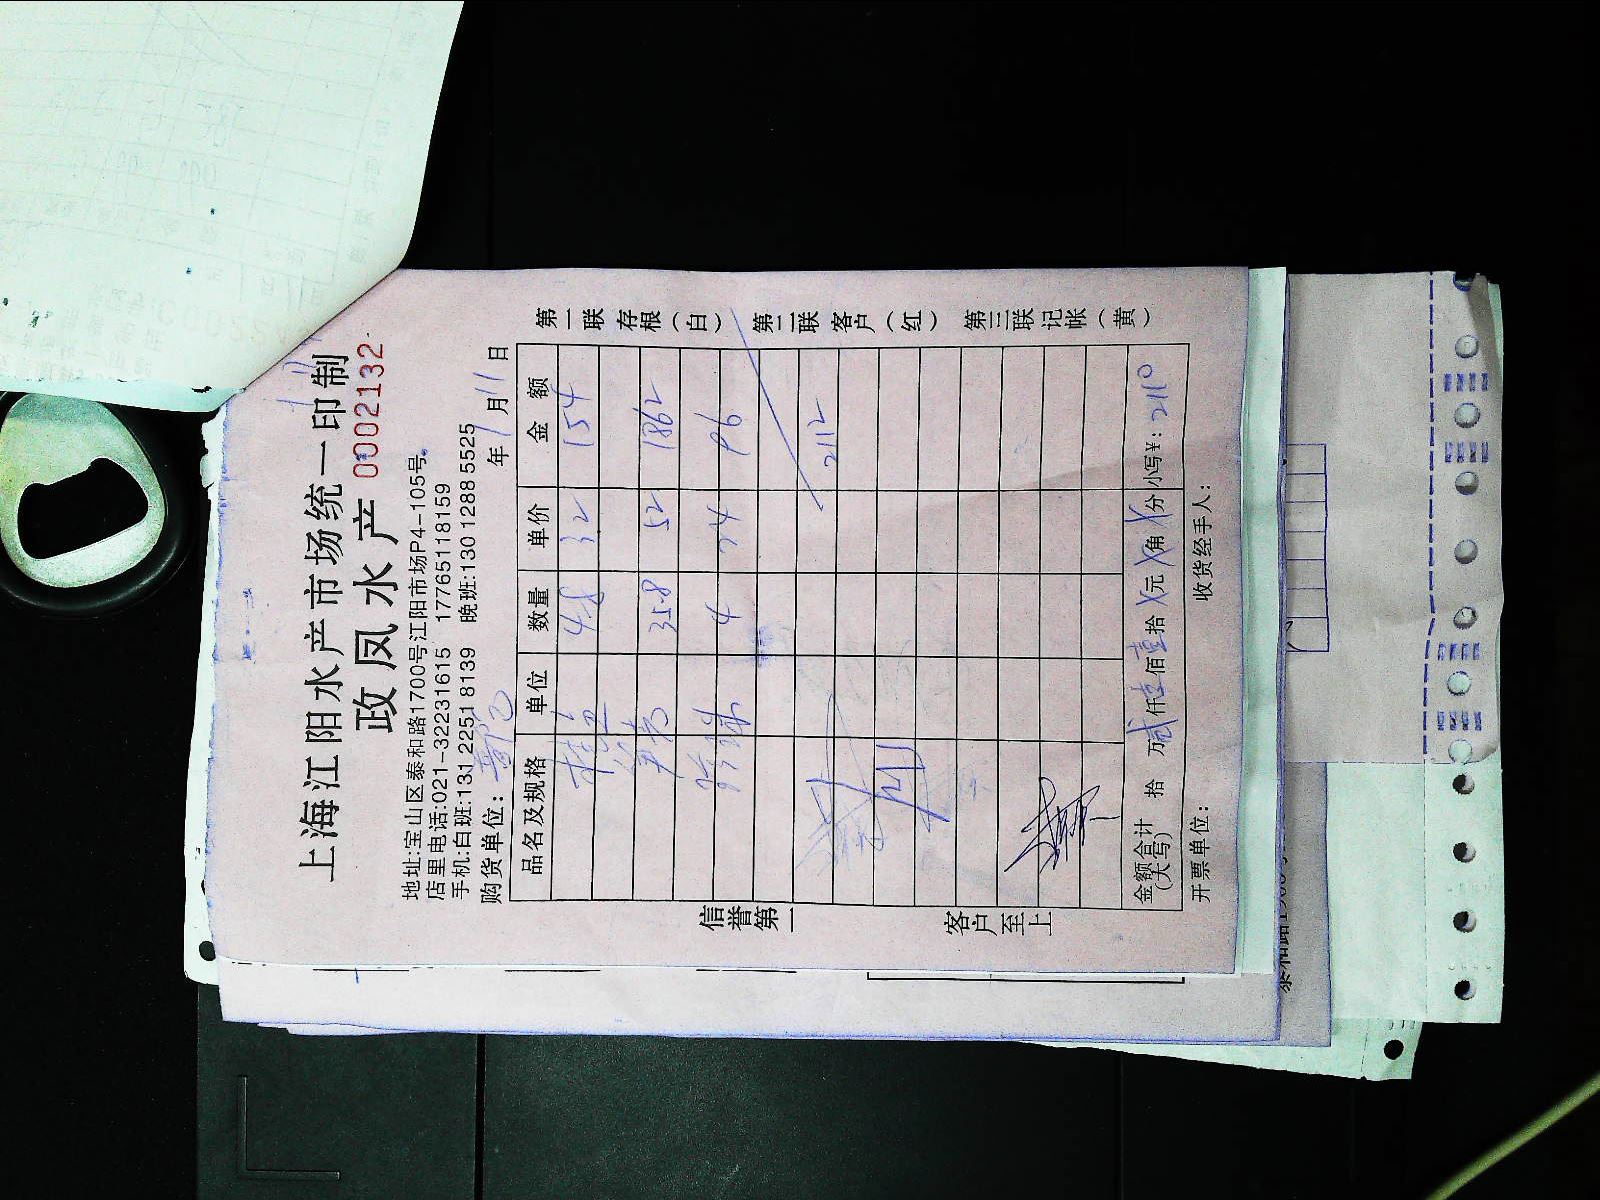 上海江阳水产市场统一印制
政凤水产 0002132
地址:宝山区泰和路1700号江阳市场P4-105号。
店里电话:021-32231615 17765118159
手机:白班:131 2251 8139 晚班:130 1288 5525
购货单位: 年 1月11日
品名及规格 单位 数量 单价 金额
桂鱼 4.8 32 154
35.8 52 1862
4 24 96
2112
金额合计(大写) 拾 万 贰仟 壹佰 壹拾 X元 X角 X分 小写¥: 2110
开票单位: 收货经手人:
第一联 存根(白) 第二联 客户(红) 第三联 记帐(黄)
信誉第一 客户至上